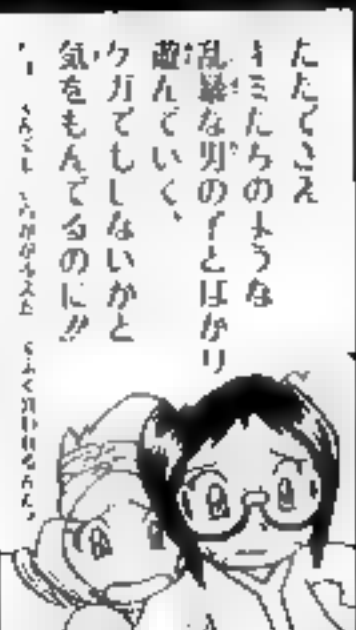 ただでさえ
キミたちのような
乱暴な男の子とばかり
遊んでいく、
ケガでもしないかと
気をもんでるのに!!